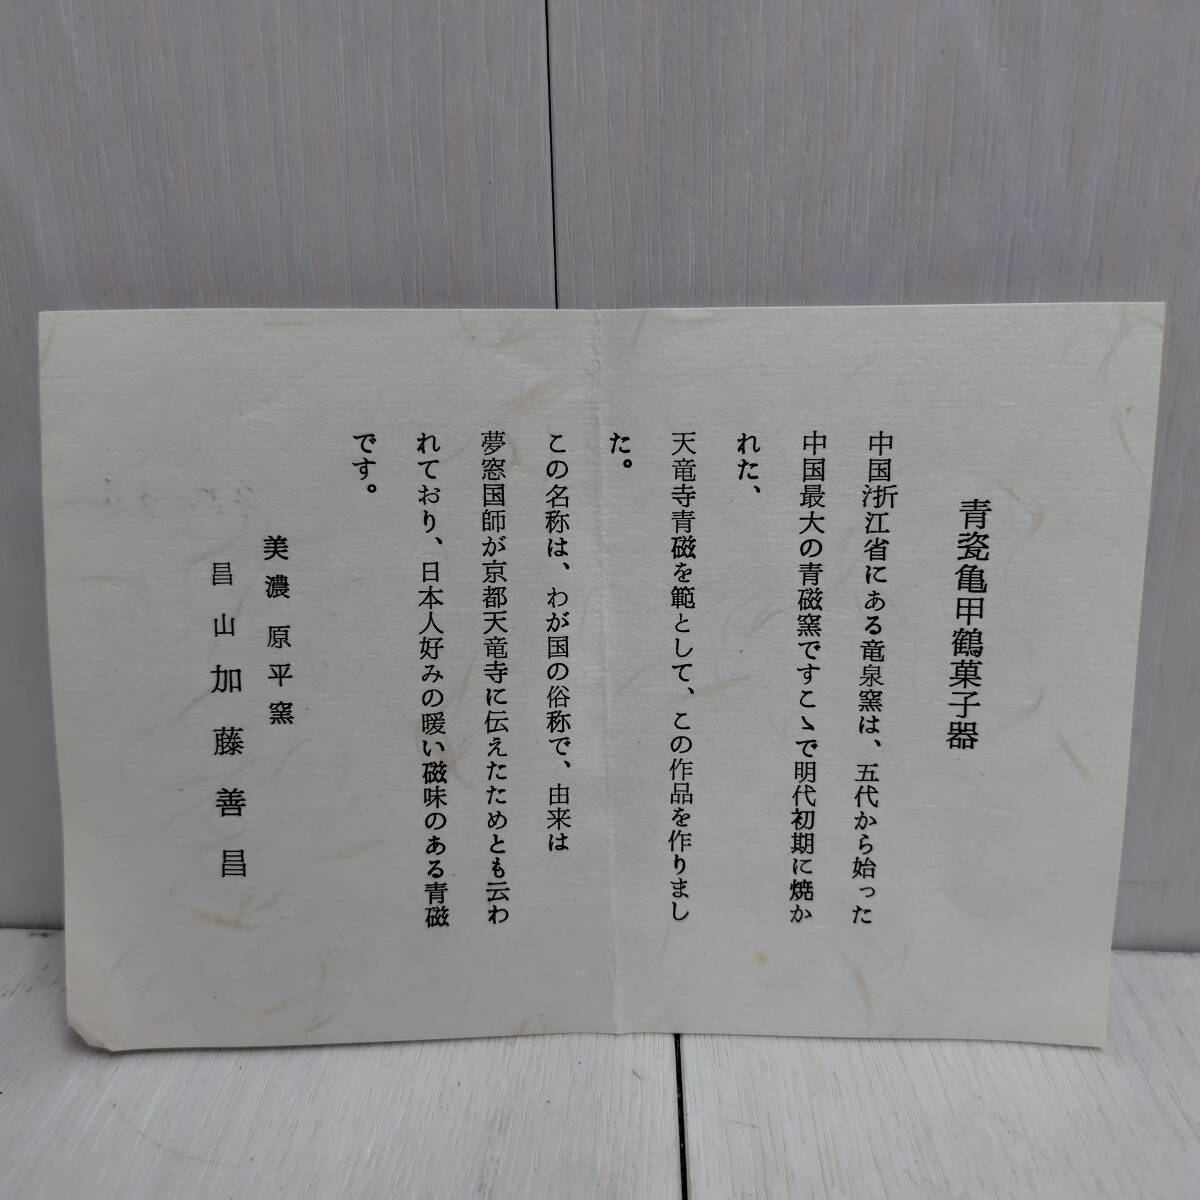 青瓷亀甲鶴菓子器
中国浙江省にある竜泉窯は、五代から始った
中国最大の青磁窯ですこゝで明代初期に焼か
れた、
天竜寺青磁を範として、この作品を作りまし
た。
この名称は、わが国の俗称で、由来は
夢窓国師が京都天竜寺に伝えたためとも云わ
れており、日本人好みの暖い磁味のある青磁
です。
美濃原平窯
昌山加藤善昌